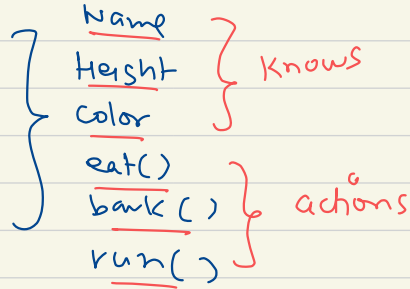 Name
Height
Color
knows
eat()
bark()
actions
run()